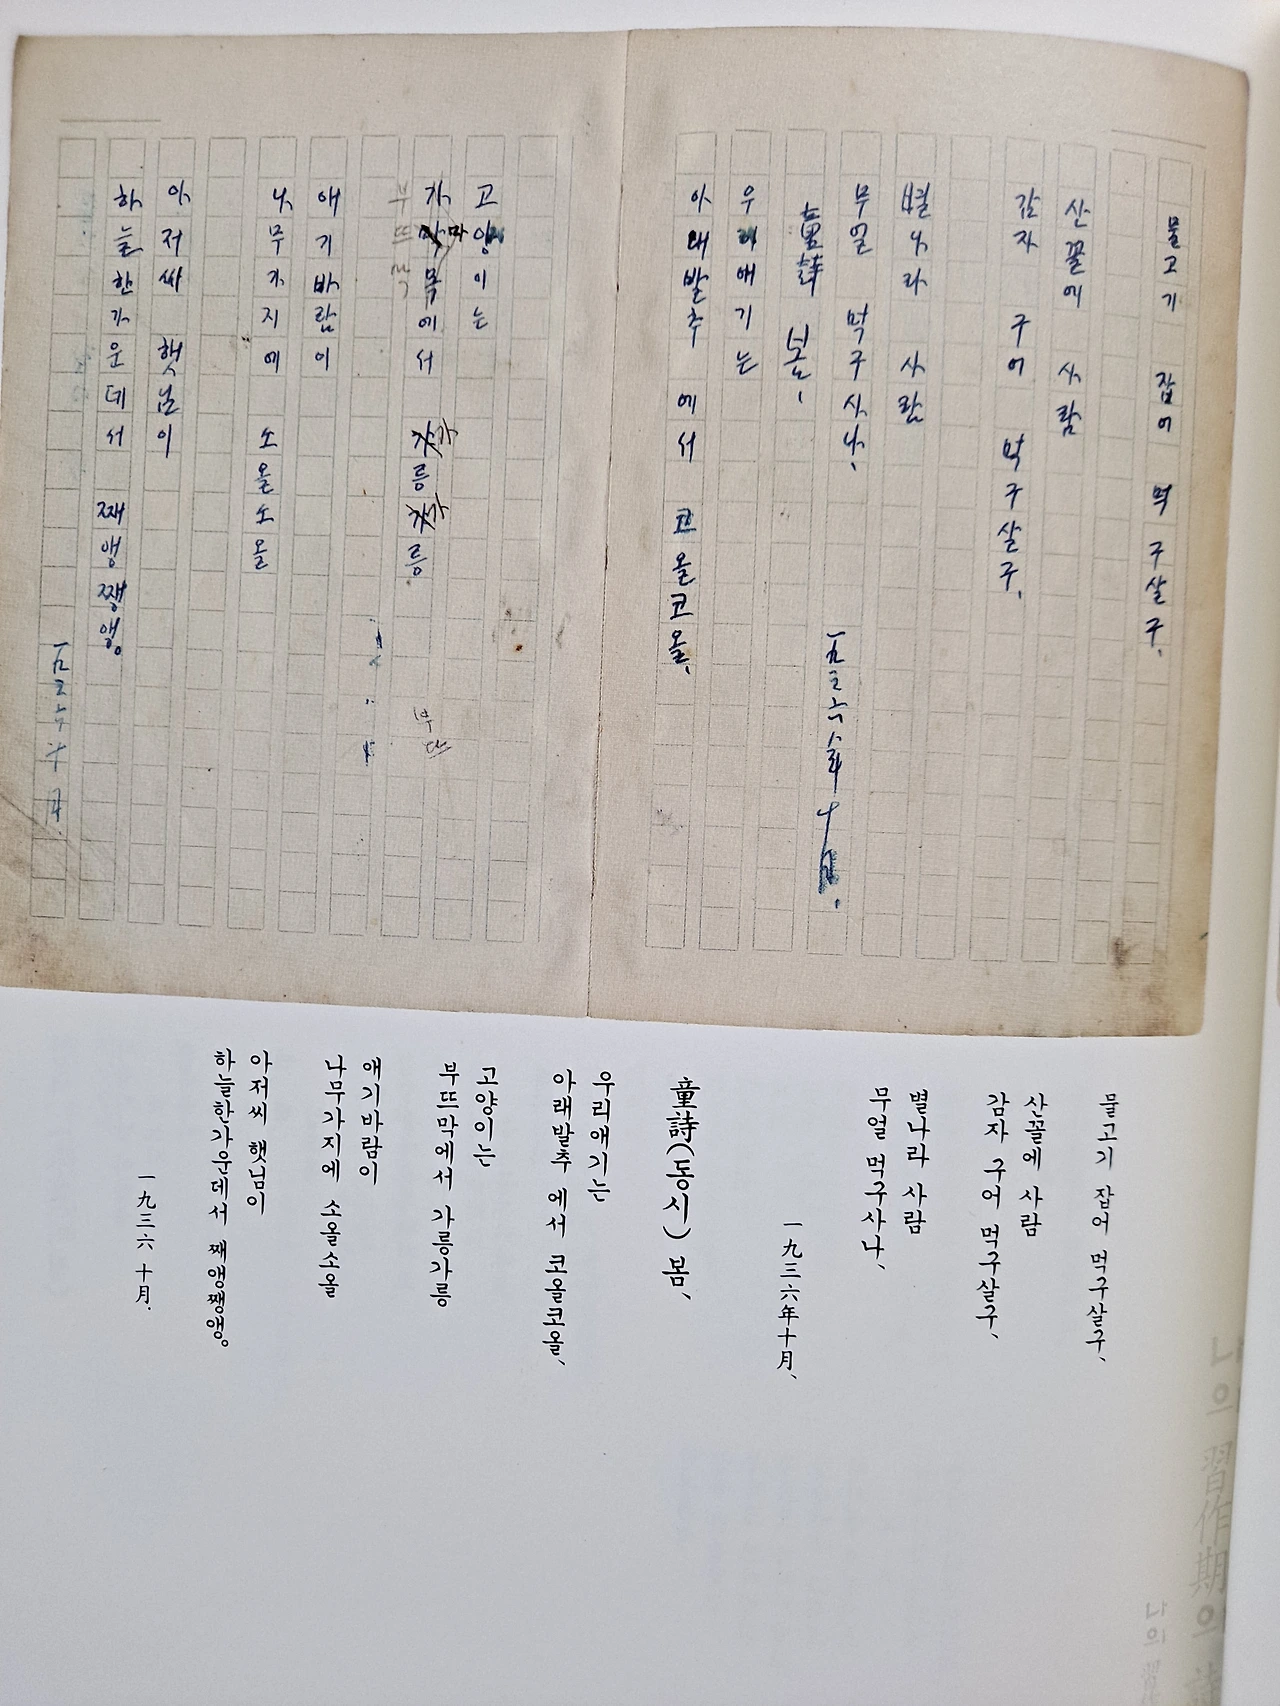 물고기 잡어 먹구살구、
산꼴에 사람
감자 구어 먹구살구、
별나라 사람
무얼 먹구사나、
一九三六年十月、
童詩 봄、
우리애기는
아래발추 에서 코올코올、
고양이는
가마목에서 가릉가릉
부뜨막
부뜨
애기바람이
나무가지에 소올소올
아저씨 햇님이
하늘한가운데서 째앵쨍앵。
一九三六十月.
물고기 잡어 먹구살구、
산꼴에 사람
감자 구어 먹구살구、
별나라 사람
무얼 먹구사나、
一九三六年十月、
童詩(동시) 봄、
우리애기는
아래발추 에서 코올코올、
고양이는
부뜨막에서 가릉가릉
애기바람이
나무가지에 소올소올
아저씨 햇님이
하늘한가운데서 째앵쨍앵。
一九三六 十月.
나의 習作期의
나의 習